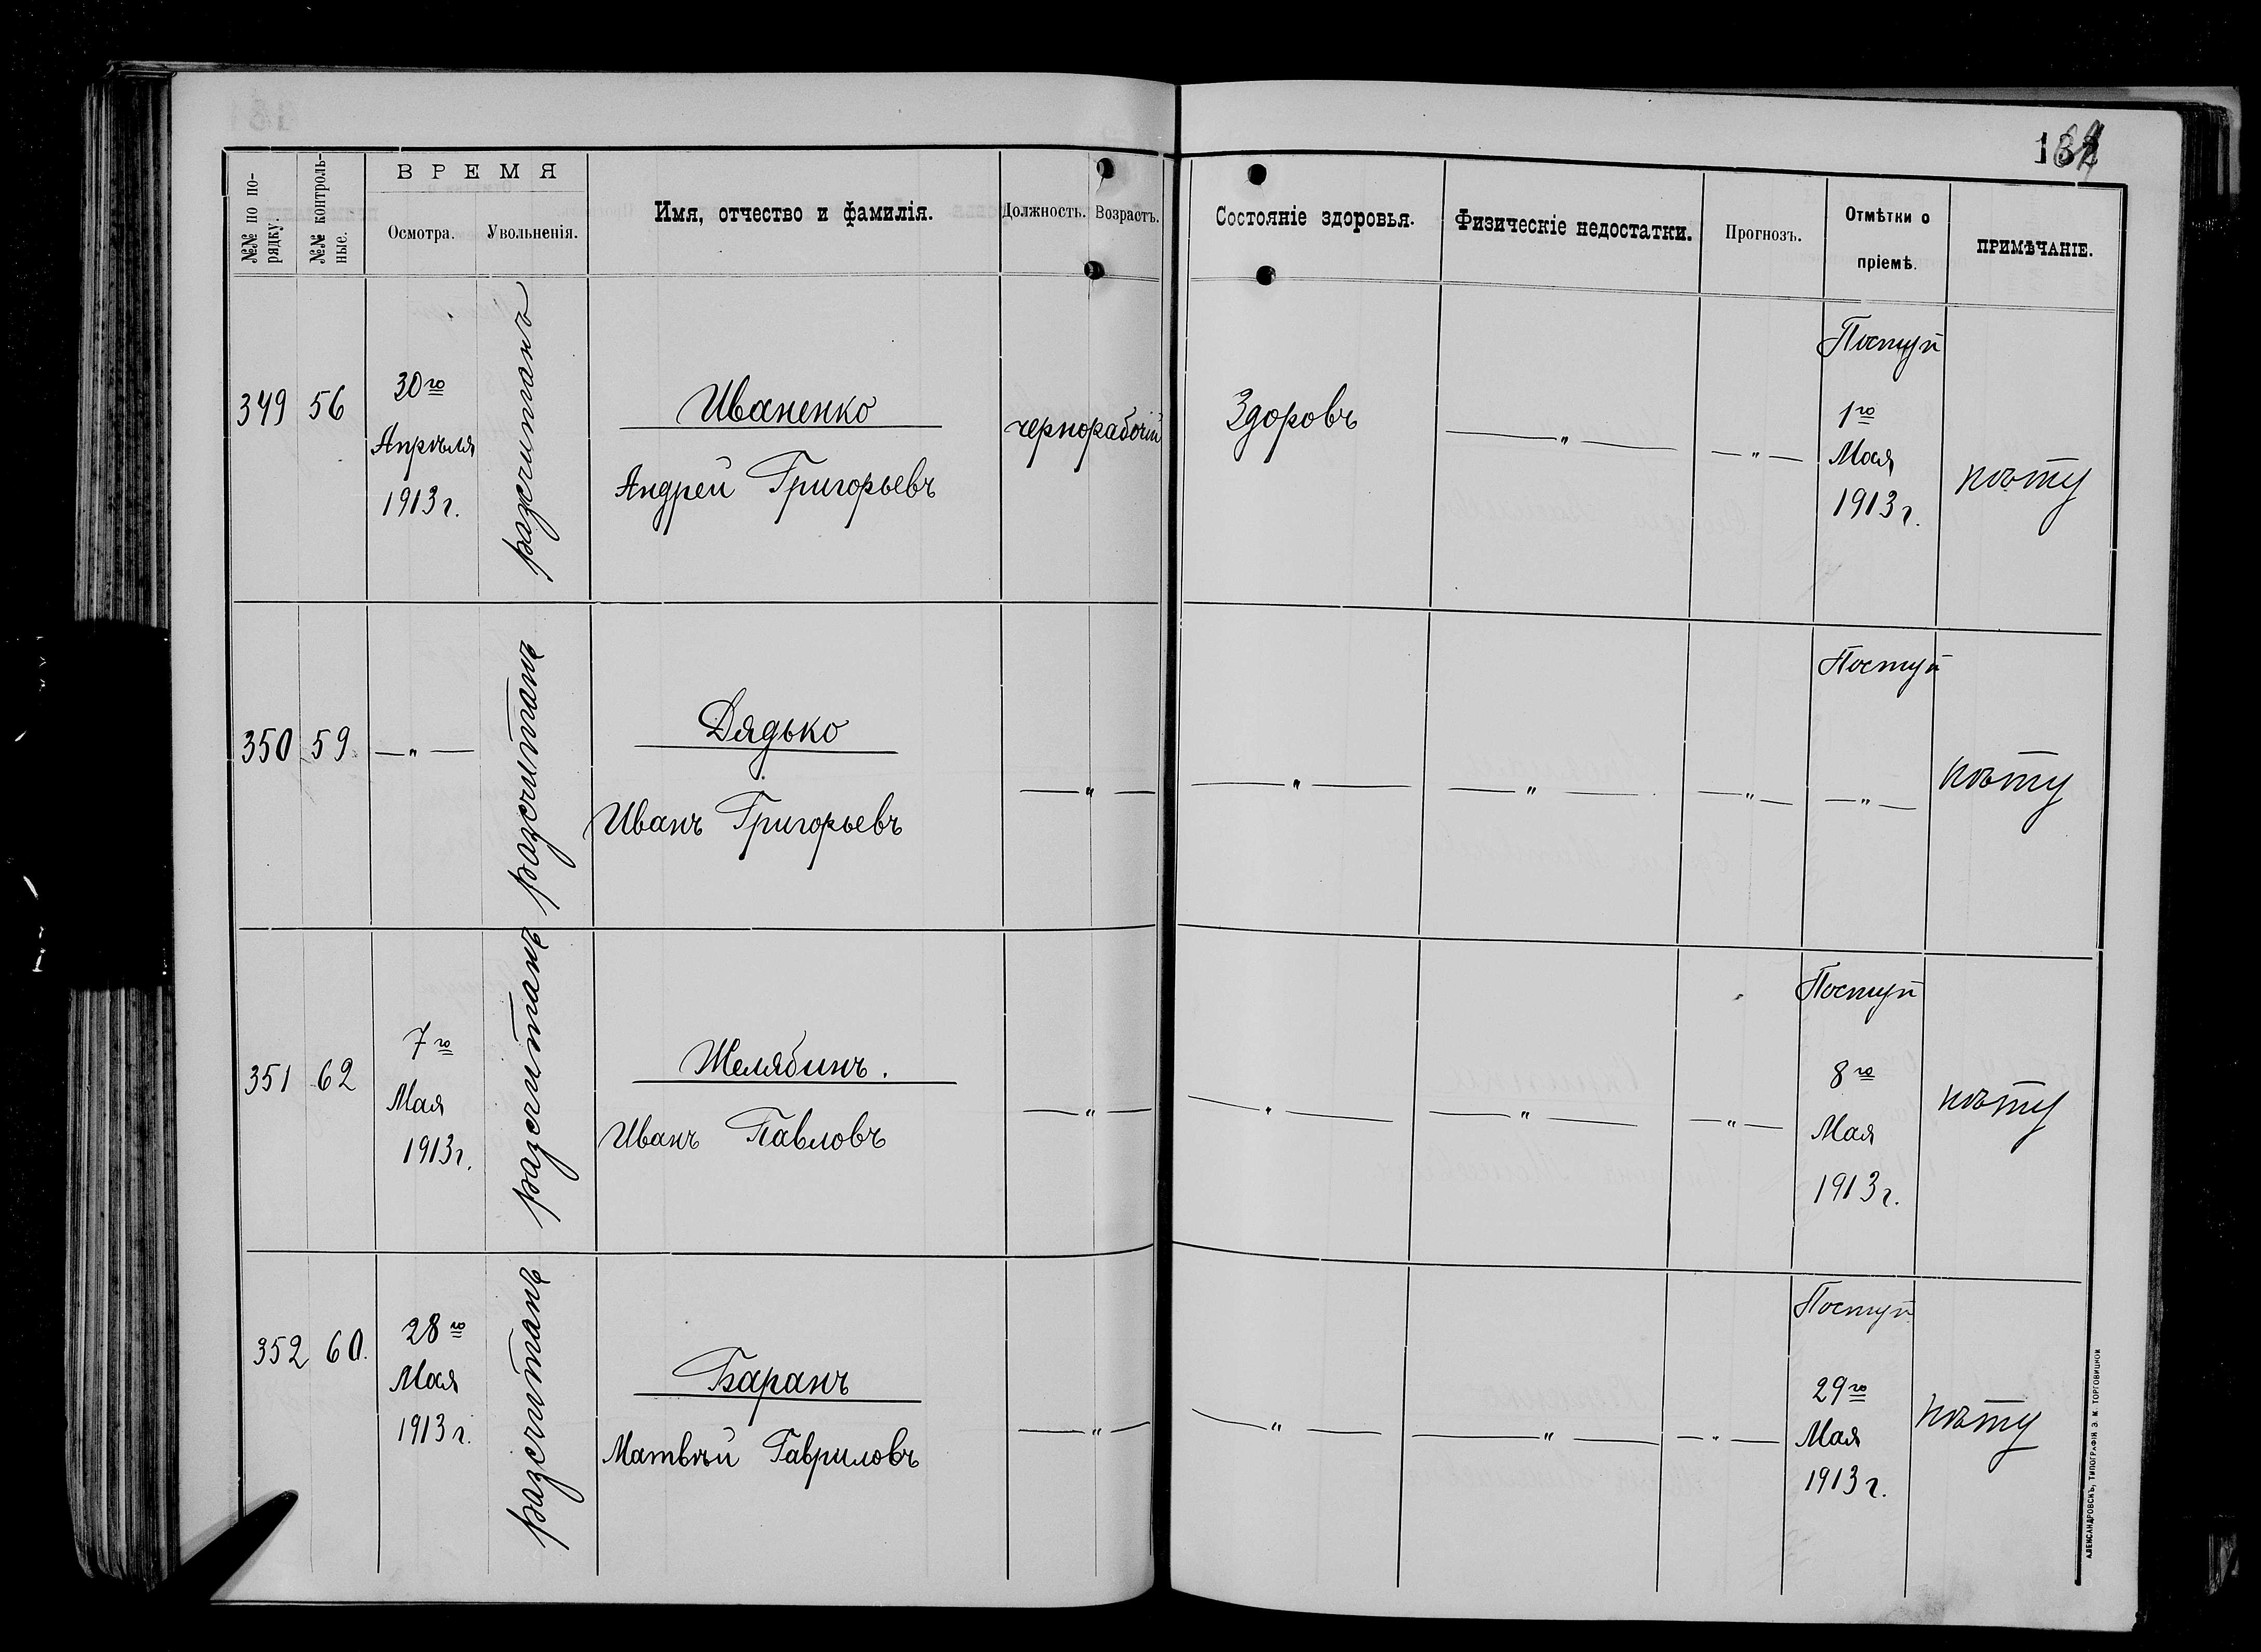 132
№№ по по-
рядку.
№№ контроль-
ные.
ВРЕМЯ
Осмотра.
Увольненія.
Имя, отчество и фамилія.
Должность.
Возрастъ.
Состояніе здоровья.
Физическіе недостатки.
Прогнозъ.
Отмѣтки о
пріемѣ.
ПРИМѢЧАНІЕ.
349
56
30го
Апрѣля
1913 г.
разсчитанъ
Иваненко
Андрей Григорьевъ
чернорабочій
Здоровъ
— " —
— " —
Поступ
1го
Мая
1913 г.
350
59
— " —
разсчитанъ
Дядько
Иванъ Григорьевъ
— " —
— " —
— " —
— " —
Поступ
— " —
351
62
7го
Мая
1913 г.
разсчитанъ
Желябинъ.
Иванъ Павловъ
— " —
— " —
— " —
— " —
Поступ
8го
Мая
1913 г.
352
60.
28го
Мая
1913 г.
разсчитанъ
Баранъ
Матвѣй Гавриловъ
— " —
— " —
— " —
— " —
Поступ
29го
Мая
1913 г.
АЛЕКСАНДРОВСКЪ, ТИПОГРАФІЯ Э. М. ТОРГОВИЦКОЙ